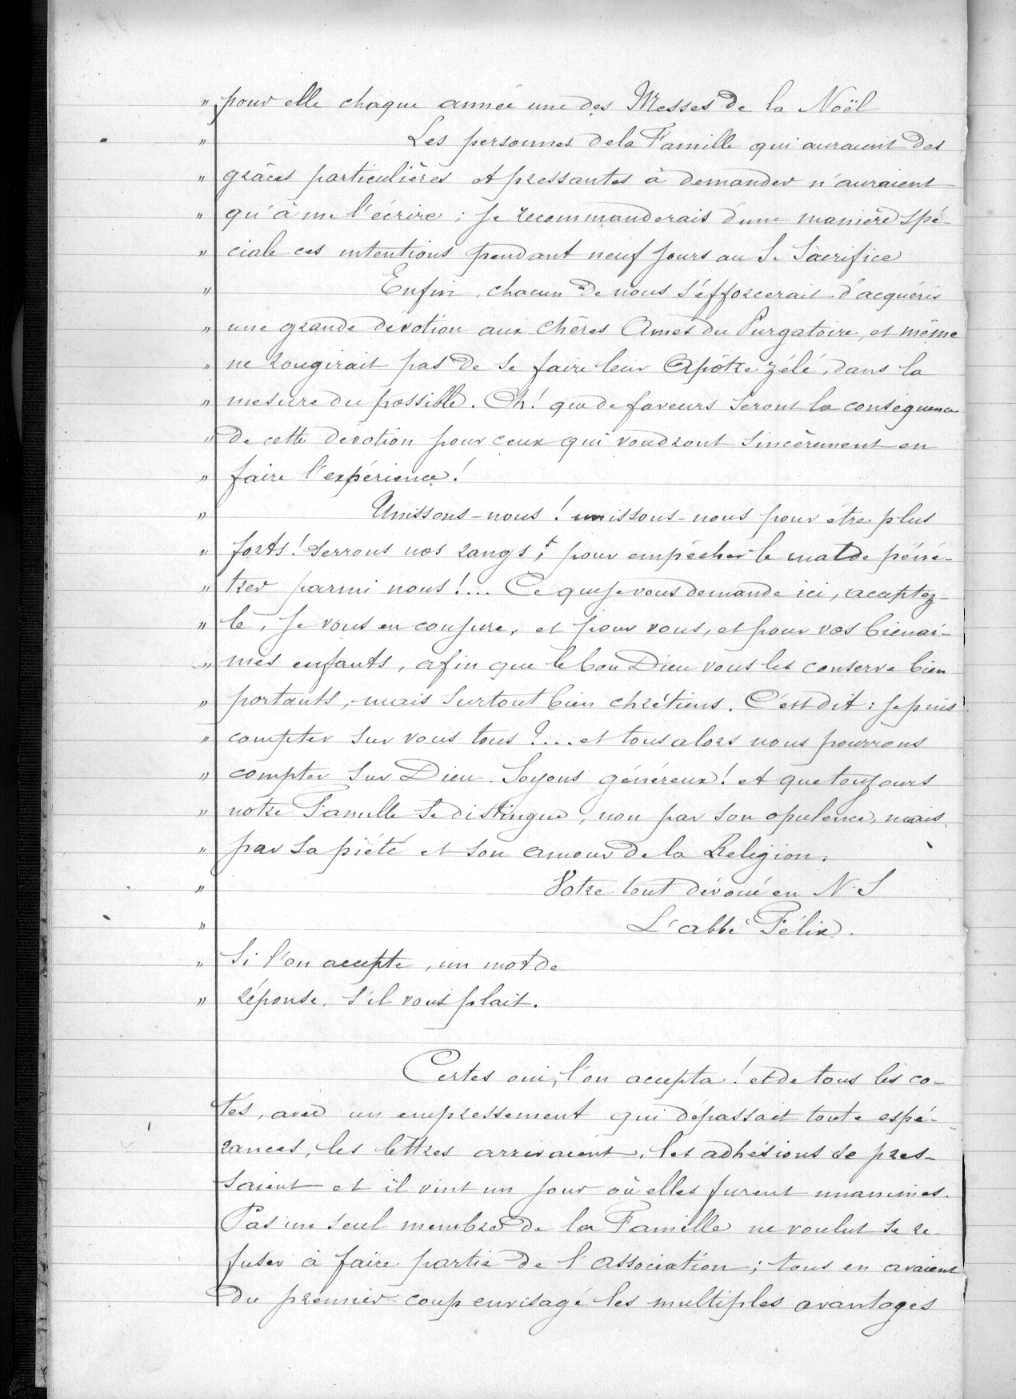 " pour elle chaque année une des Messes de la Noël
" Les personnes de la Famille qui auraient des
" grâces particulières et pressantes à demander n'auraient
" qu'à me l'écrire ; je recommanderais d'une manière spé-
" ciale ces intentions pendant neuf jours au S. Sacrifice
" Enfin chacun de nous s'éfforcerait d'acquérir
" une grande dévotion aux chères Ames du Purgatoire, et même
" ne rougirait pas de se faire leur Apôtre zélé, dans la
" mesure du possible. Oh! que de faveurs seront la conséquence
" de cette dévotion pour ceux qui voudront sincèrement en
" faire l'expérience!
" Unissons-nous! unissons-nous pour être plus
" forts! serrons nos rangs, pour empêcher le mal de péné-
" trer parmi nous!... Ce que je vous demande ici, acceptez-
" le, je vous en conjure, et pour vous, et pour vos bienai-
" més enfants, afin que le bon Dieu vous les conserve bien
" portants, mais surtout bien chrétiens. C'est dit : je puis
" compter sur vous tous ?... et tous alors nous pourrons
" compter sur Dieu. Soyons généreux! et que toujours
" notre Famille se distingue, non par son opulence, mais
" par sa piété et son amour de la Religion.
" Votre tout dévoué en N. S
" L'abbé Félix.
" Si l'on accepte, un mot de
" réponse, s'il vous plait.
Certes oui, l'on accepta! et de tous les co-
tés, avec un empressement qui dépassait toute espé-
rances, les lettres arrivaient, les adhésions se pres-
saient et il vint un jour où elles furent unanimes.
Pas un seul membre de la Famille ne voulut se re
fuser à faire partie de l'association ; tous en avaient
du premier coup envisagé les multiples avantages